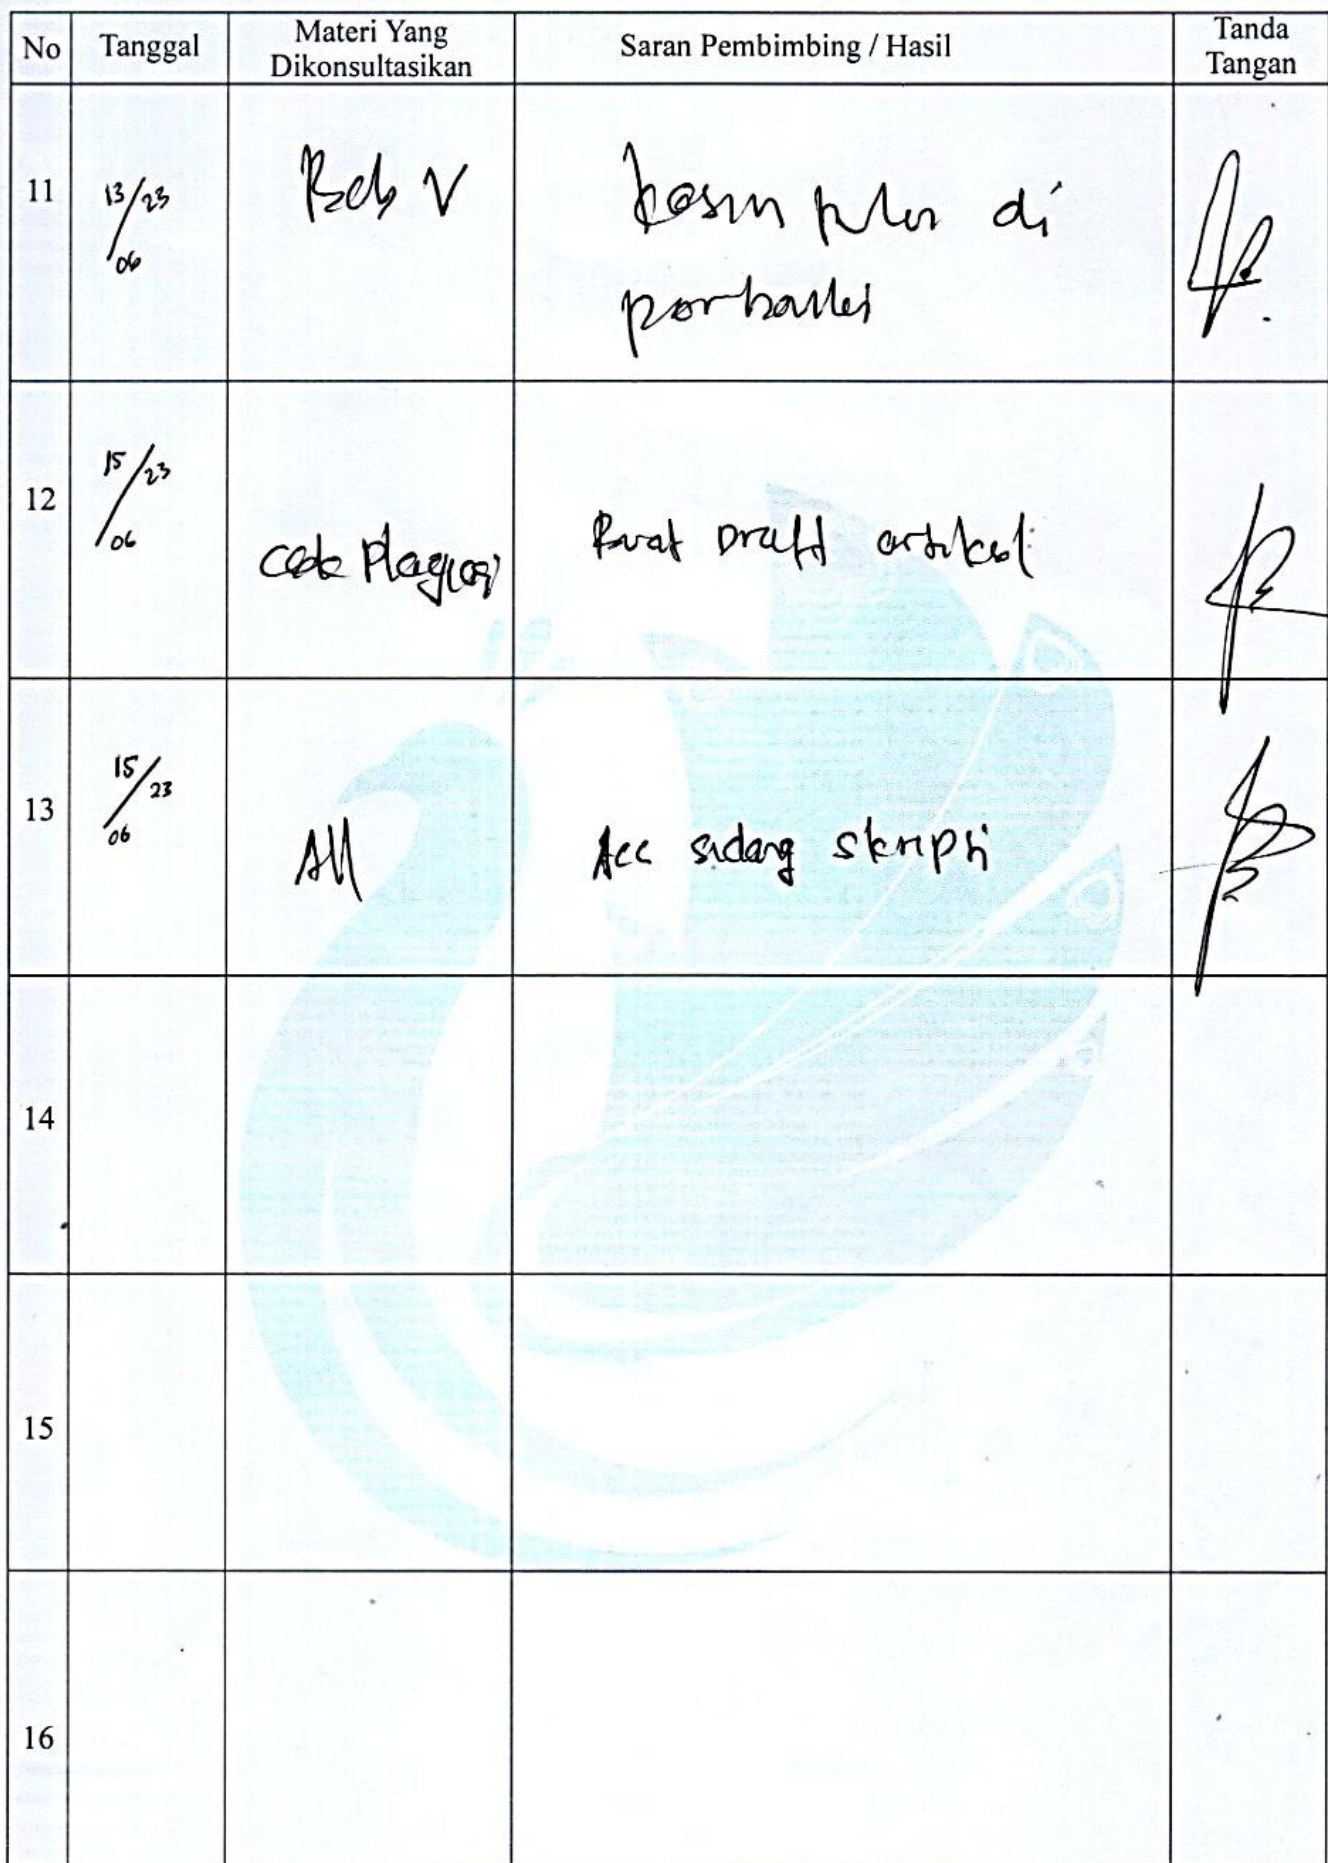 No Tanggal Materi Yang Dikonsultasikan Saran Pembimbing / Hasil Tanda Tangan
11 13/06 23 Bab V kesimpulan di
perbaiki
12 15/06 23 Plagiasi Buat Draft artikel
13 15/06 23 All Acc sidang skripsi
14
15
16